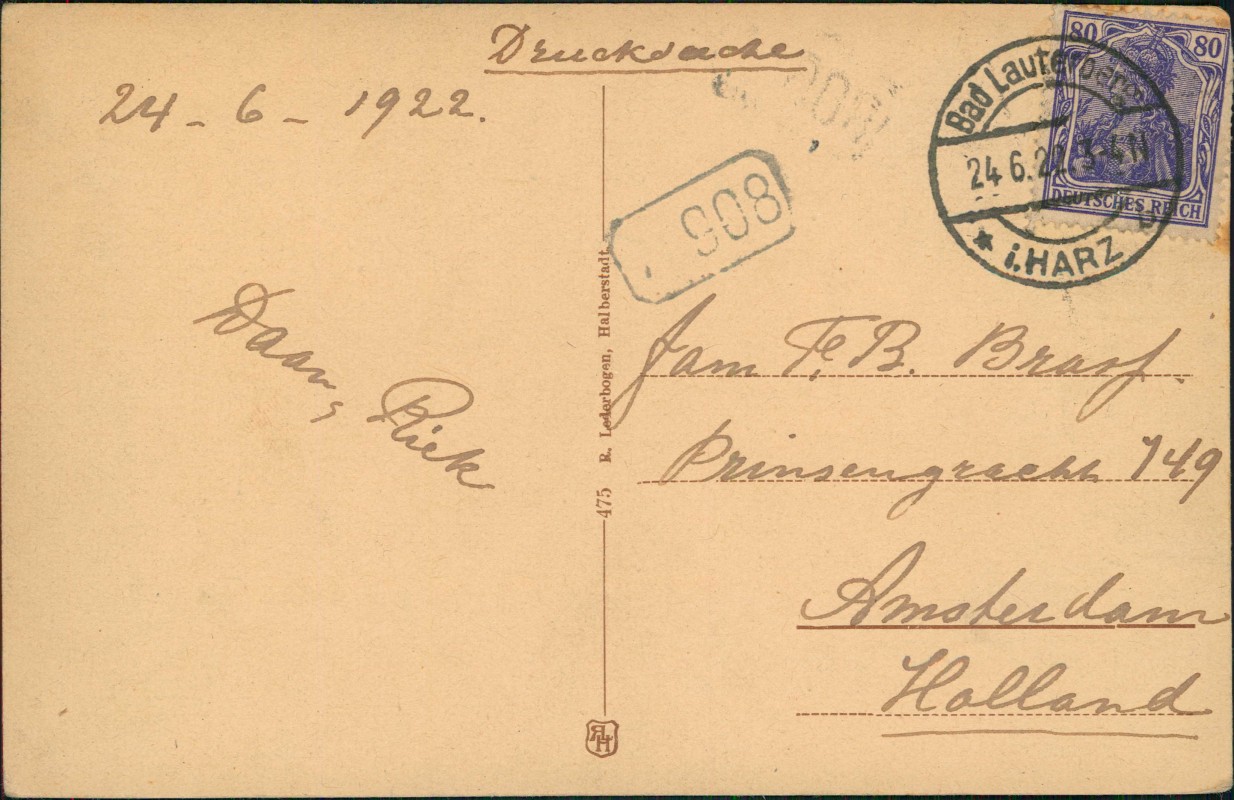 Drucksache
24 - 6 - 1922.
80 80
DEUTSCHES REICH
Bad Lauterberg
24.6.22 3-4N
* i. HARZ b
908
Daan, Riek
475 R. Lederbogen, Halberstadt.
Fam F. B. Braaf.
Prinsengracht 749
Amsterdam
Holland
RLH